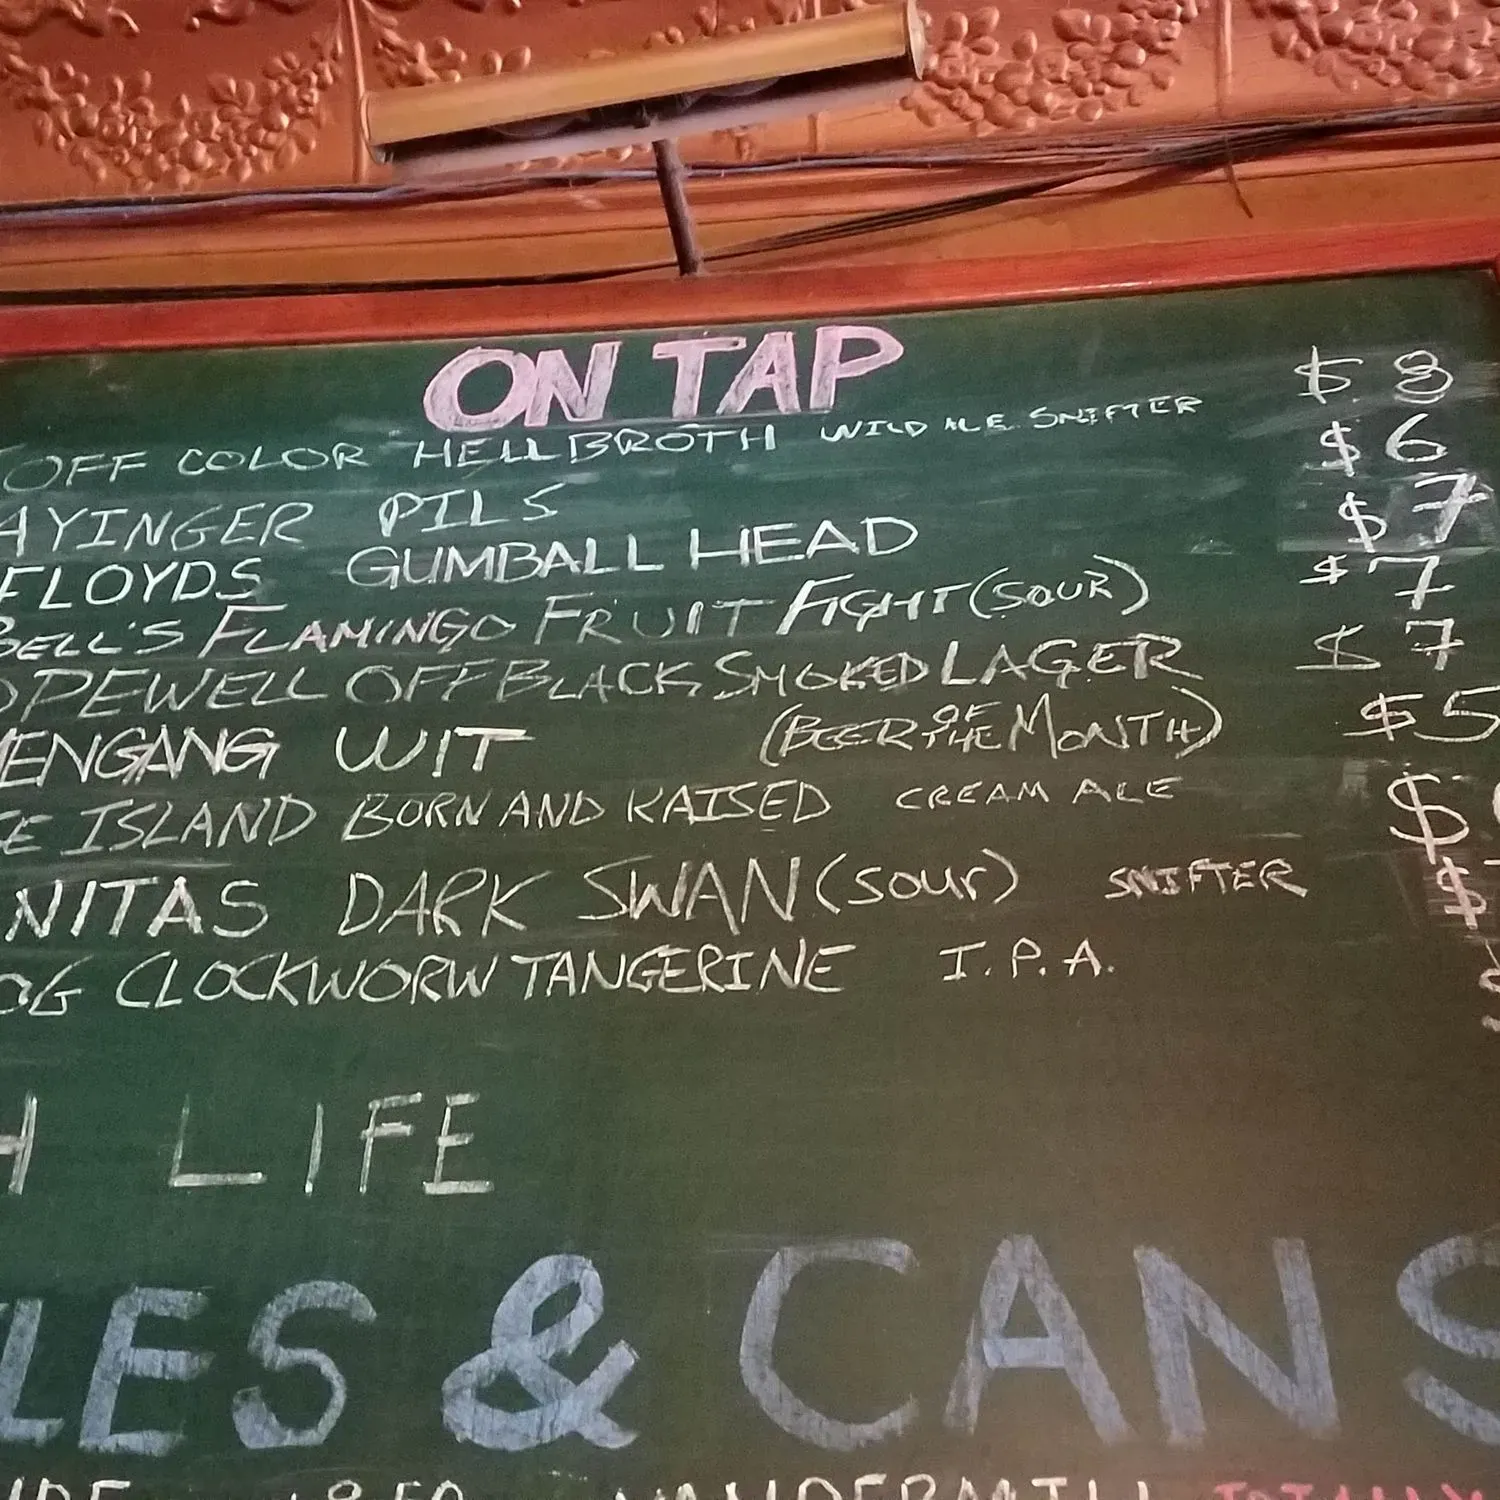 ON TAP
OFF COLOR HELLBROTH WILD ALE SNIFTER $8
AYINGER PILS $6
FLOYDS GUMBALL HEAD $7
BELL'S FLAMINGO FRUIT FIGHT (SOUR) $7
OPEWELL OFF BLACK SMOKED LAGER $7
ENGANG WIT (BEER OF THE MONTH) $5
E ISLAND BORN AND RAISED CREAM ALE $
NITAS DARK SWAN (SOUR) SNIFTER $
OG CLOCKWORK TANGERINE I.P.A. $
H LIFE
LES & CANS